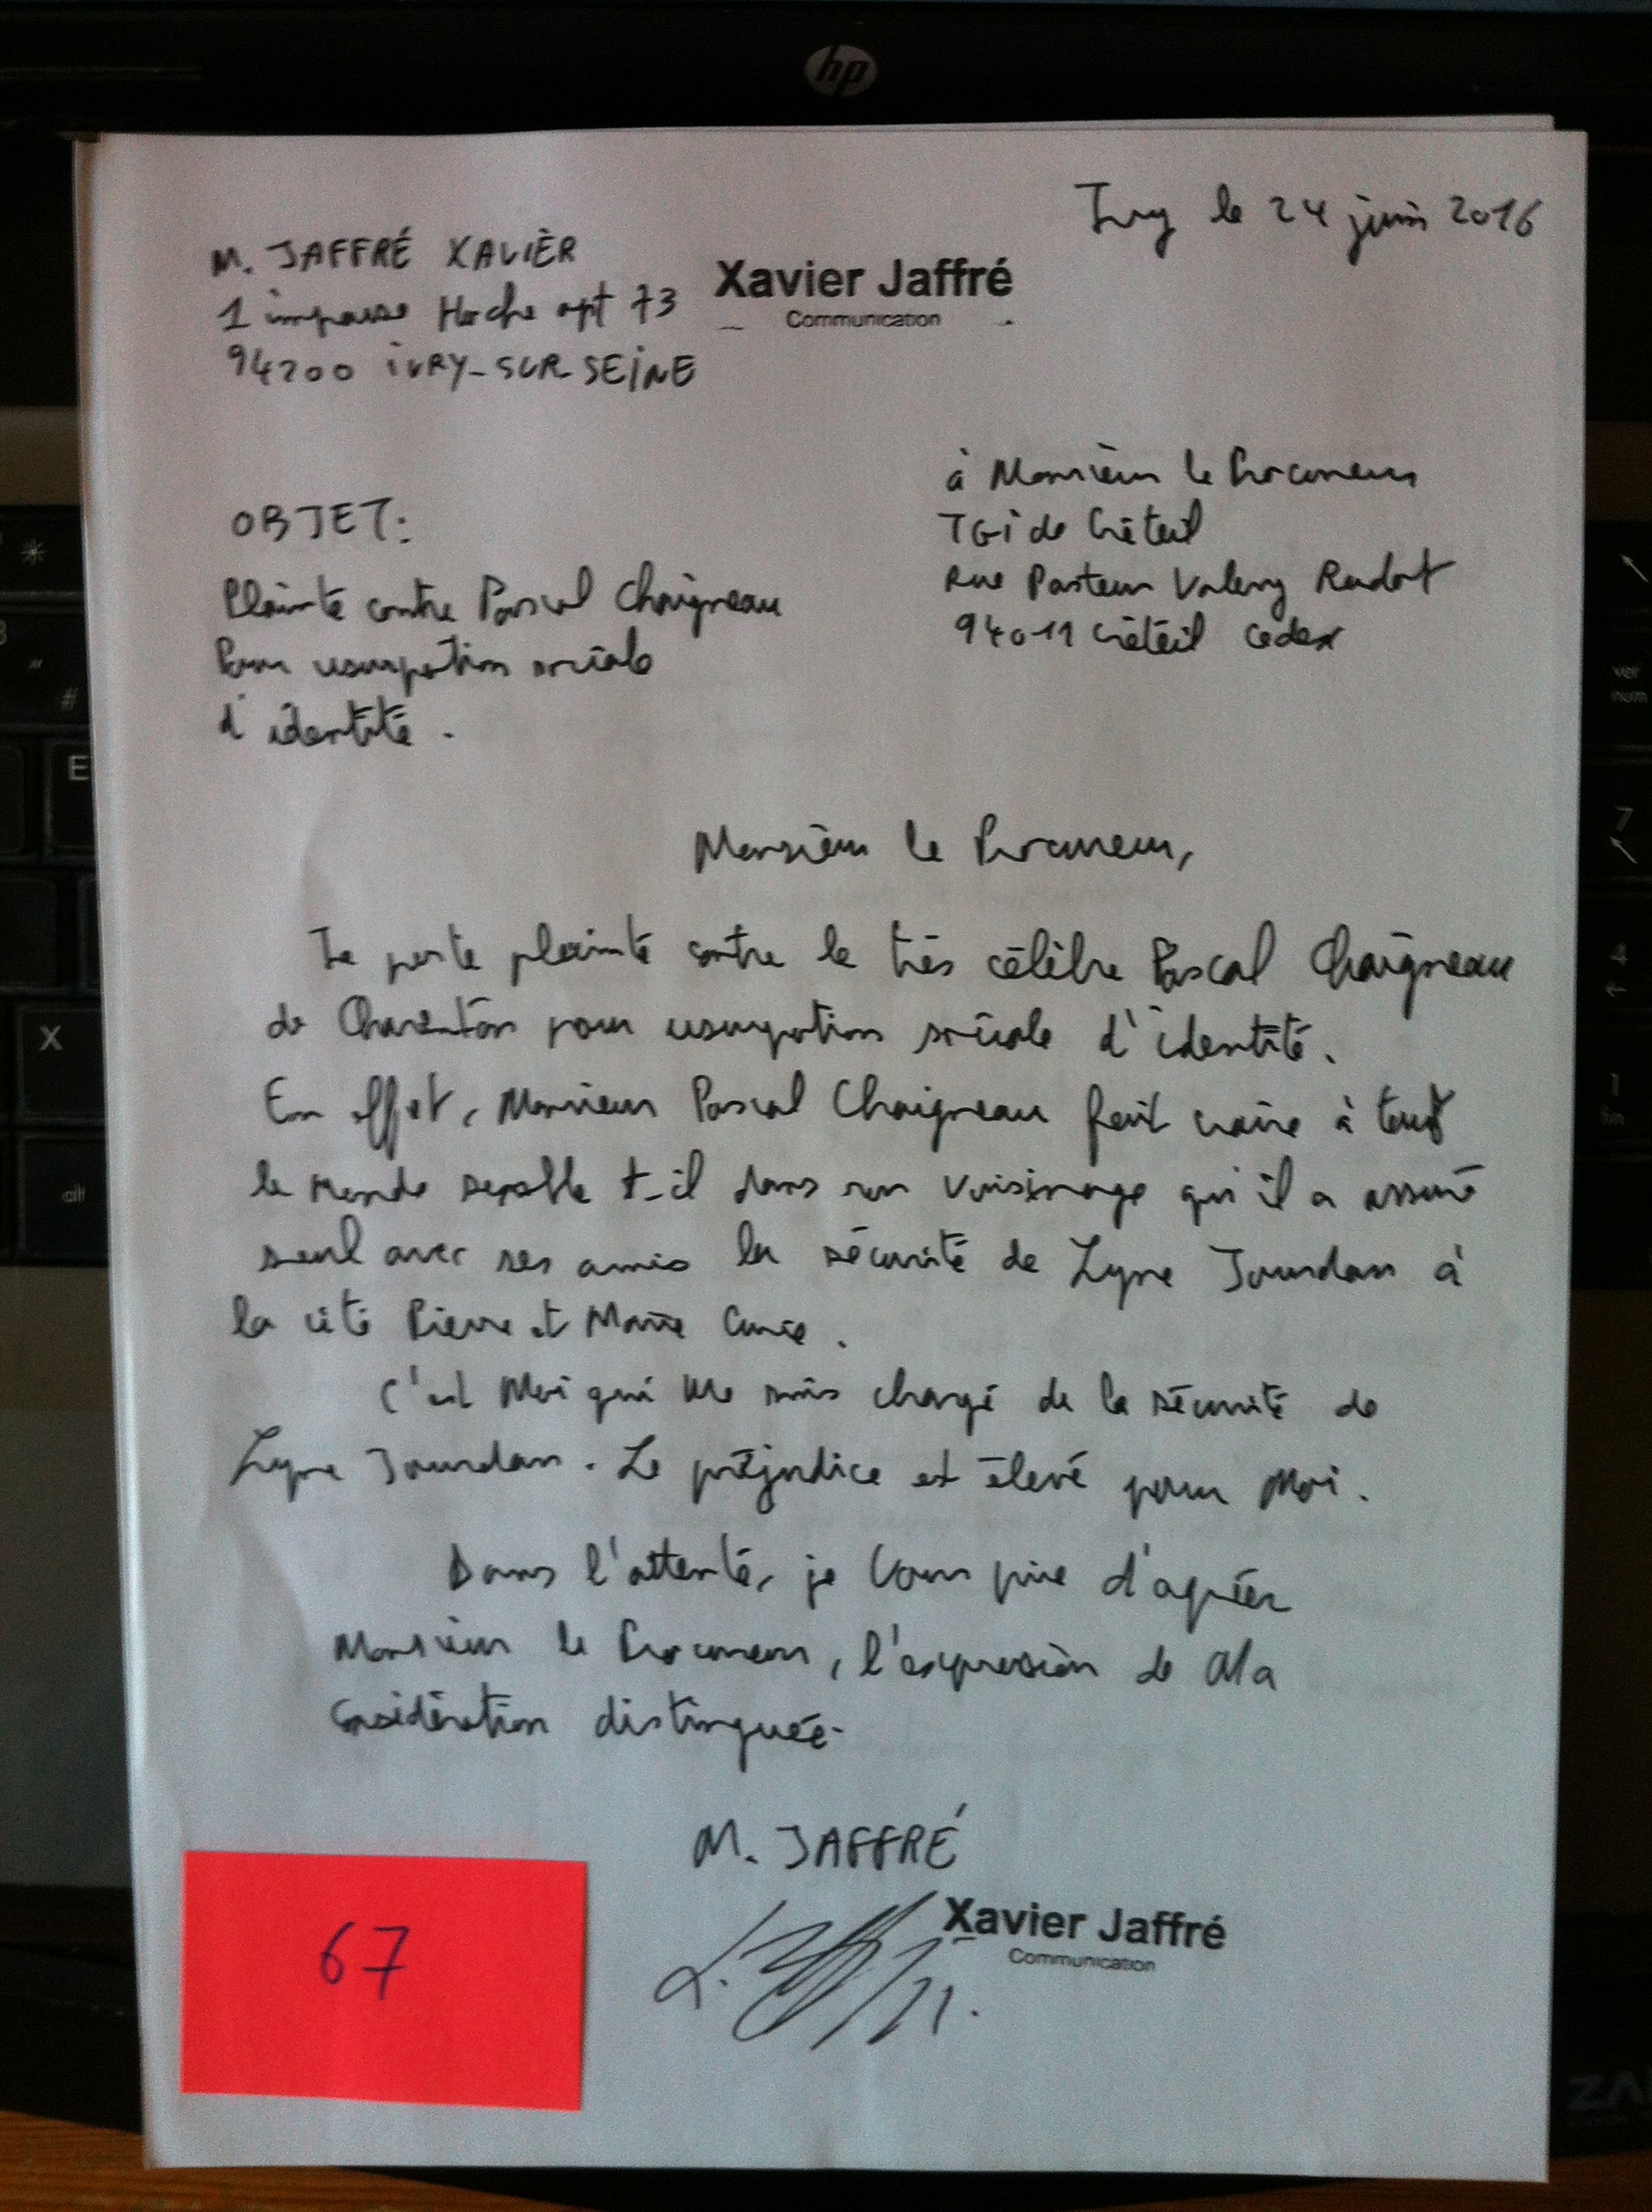 hp
Ivry le 24 juin 2016
M. JAFFRÉ XAVIER
1 impasse Hoche apt 73
94200 IVRY-SUR SEINE
Xavier Jaffré
Communication
à Monsieur le Procureur
TGI de Créteil
Rue Pasteur Valery Radot
94011 Créteil cedex
OBJET:
Plainte contre Pascal Chaigneau
Pour usurpation sociale
d'identité.
Monsieur le Procureur,
Je porte plainte contre le très célèbre Pascal Chaigneau
de Charenton pour usurpation sociale d'identité.
En effet, Monsieur Pascal Chaigneau fait croire à tout
le monde semble t-il dans son voisinage qu'il a assuré
seul avec ses amis la sécurité de Lyne Jourdan à
la cité Pierre et Marie Curie.
C'est Moi qui me suis chargé de la sécurité de
Lyne Jourdan. Le préjudice est élevé pour Moi.
Dans l'attente, je Vous prie d'agréer
Monsieur le Procureur, l'expression de Ma
Considération distinguée.
M. JAFFRÉ
Xavier Jaffré
Communication
67
E
X
alt
ver
num
7
4
1
fin
#
*